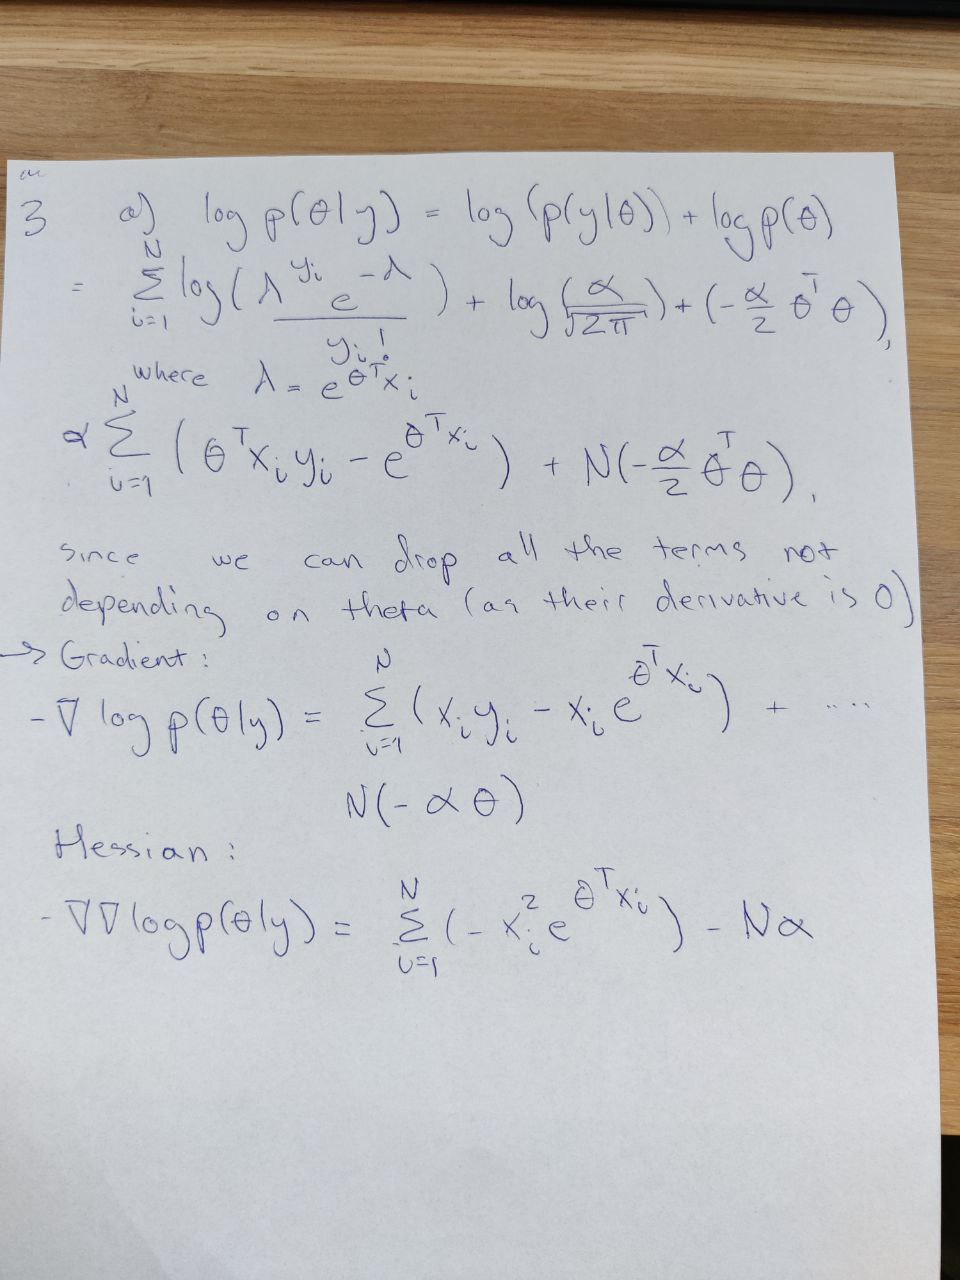 3 a) log p(θ|y) = log(p(y|θ)) + log p(θ)
= ∑_{i=1}^{N} log( λ^{y_i} e^{-λ} / y_i! ) + log( α / √2π ) + ( - α/2 θ^T θ ),
where λ = e^{θ^T x_i}
α ∑_{i=1}^{N} ( θ^T x_i y_i - e^{θ^T x_i} ) + N( - α/2 θ^T θ ),
since we can drop all the terms not
depending on theta (as their derivative is 0)
→ Gradient:
- ∇ log p(θ|y) = ∑_{i=1}^{N} ( x_i y_i - x_i e^{θ^T x_i} ) + ....
N( - α θ )
Hessian:
- ∇∇ log p(θ|y) = ∑_{i=1}^{N} ( - x_i^2 e^{θ^T x_i} ) - Nα